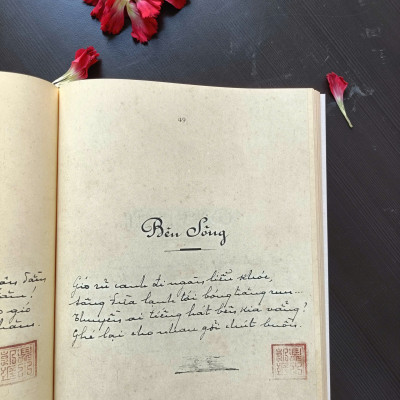 49
Bến Sông
Gió rũ canh đi ngàn liễu khóc,
Sông đưa lạnh tới bóng trăng run...
Thuyền ai tiếng hát bên kia vẳng?
Ghé lại cho nhau gởi chút buồn.